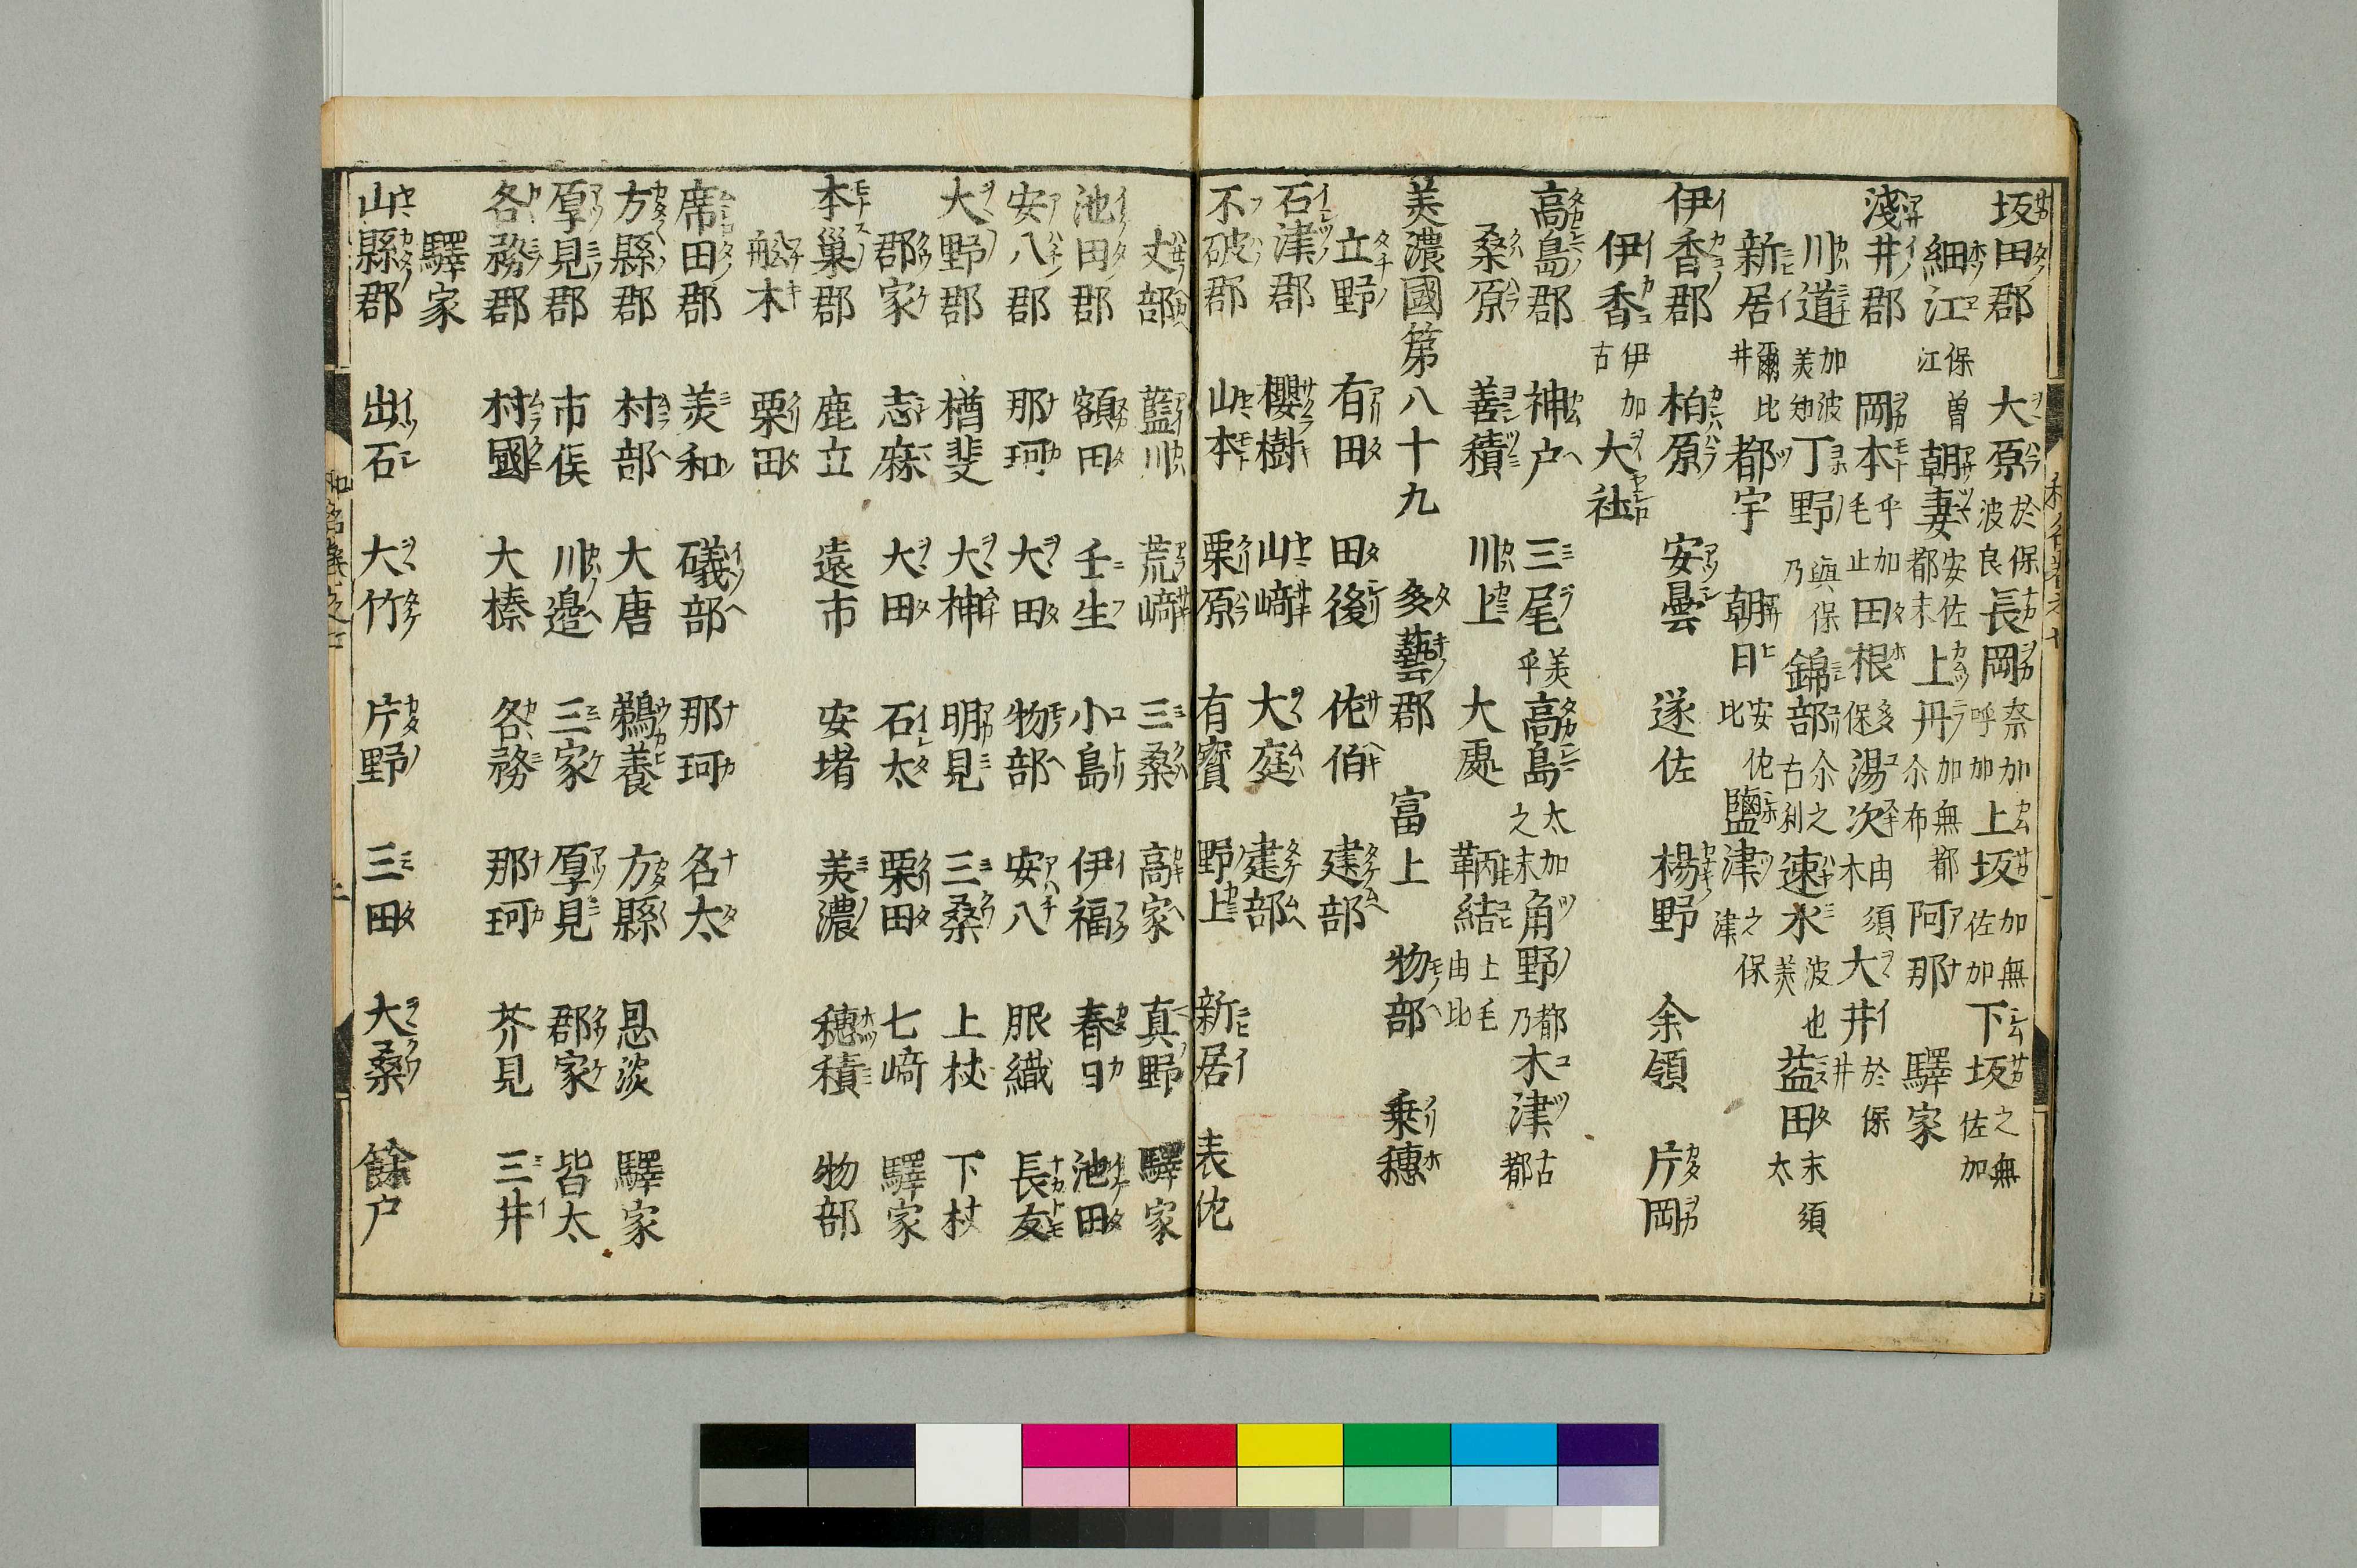 坂田郡 大原於保波良 長岡奈加乎加 上坂加無佐加 下坂之無佐加
細江保曽江 朝妻安佐都末 上丹加無都布尓 阿那 驛家
淺井郡 岡本乎加毛止 田根多保 湯次由須木 大井於保井
川道加波美知 丁野與保乃 錦部尓之古利 速水波也美 益田末須太
新居爾比井 都宇 朝日安佐比 鹽津之保津
伊香郡 柏原 安曇 遂佐 楊野 余領 片岡
伊香伊加古 大社
高島郡 神户 三尾美乎 高島太加之末 角野都乃 木津古都
桑原 善積 川上 大處 鞆結上毛由比
美濃國第八十九 多藝郡 富上 物部 乗穂
立野 有田 田後 佐伯 建部
石津郡 櫻樹 山﨑 大庭 建部
不破郡 山本 栗原 有寳 野上 新居 表佐
丈部 藍川 荒﨑 三桑 高家 真野 驛家
池田郡 額田 壬生 小島 伊福 春日 池田
安八郡 那珂 大田 物部 安八 服織 長友
大野郡 楢斐 大神 明見 三桑 上杖 下杖
郡家 志麻 大田 石太 栗田 七﨑 驛家
本巢郡 鹿立 遠市 安堵 美濃 穂積 物部
舩木 栗田
席田郡 美和 礒部 那珂 名太
方縣郡 村部 大唐 鵜養 方縣 思淡 驛家
厚見郡 市俣 川邉 三家 厚見 郡家 皆太
各務郡 村國 大榛 各務 那珂 芥見 三井
驛家
山縣郡 出石 大竹 片野 三田 大桑 餘户